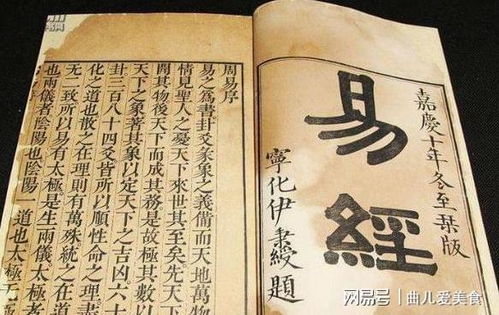 嘉慶十年冬至栞版
易經
寧化伊秉綬題
周易序
易之爲書卦爻彖象之義備而天地萬物
情見聖人之憂天下來世其至矣先天
開其物後天下而成其務是故極其數以
天下之象著其象以定天下之吉凶六十
卦三百八十四爻皆所以順性命之理盡
化之道也散之在理則有萬殊統之在道
无二致所以易有太極是生兩儀太極
也兩儀者陰陽也陰陽一道也太
网易号 | 曲儿爱美食